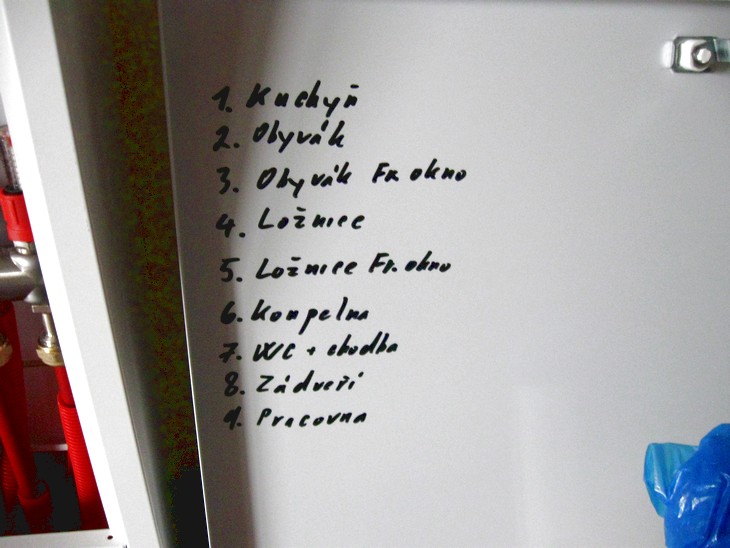 1. Kuchyň
2. Obyvák
3. Obyvák Fr. okno
4. Ložnice
5. Ložnice Fr. okno
6. Koupelna
7. WC + chodba
8. Zádveří
9. Pracovna